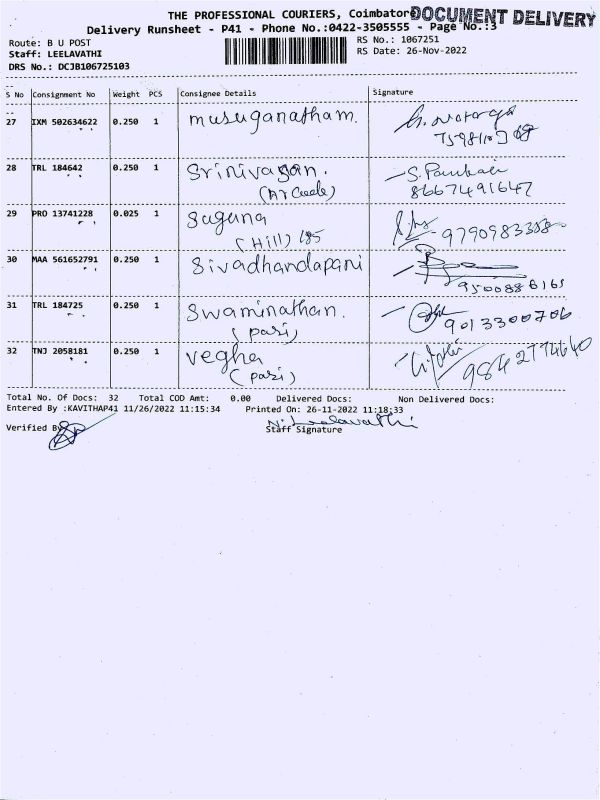 THE PROFESSIONAL COURIERS, Coimbatore
DOCUMENT DELIVERY
Delivery Runsheet - P41 - Phone No.:0422-3505555 - Page No.:3
Route: B U POST
RS No.: 1067251
Staff: LEELAVATHI
RS Date: 26-Nov-2022
DRS No.: DCJB106725103
S No Consignment No Weight PCS Consignee Details Signature
27 IXM 502634622 0.250 1 musuganatham.
28 TRL 184642 0.250 1 Srinivasan. S. Pambali
(Arcade) 8667491647
29 PRO 13741228 0.025 1 Suguna
(Hill) 185 9790983388
30 MAA 561652791 0.250 1 Sivadhandapani
9500886165
31 TRL 184725 0.250 1 Swaminathan.
(pari) 9013300706
32 TNJ 2058181 0.250 1 vegha
(pari) 9842774640
Total No. Of Docs: 32 Total COD Amt: 0.00 Delivered Docs: Non Delivered Docs:
Entered By :KAVITHAP41 11/26/2022 11:15:34 Printed On: 26-11-2022 11:18:33
N. Leelavathi
Verified By Staff Signature